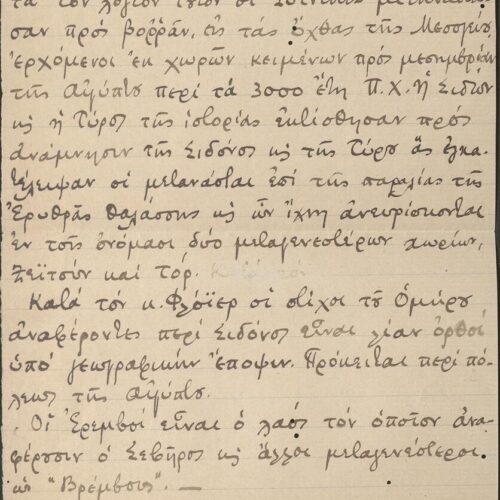 τά τόν λόγιον
σαν πρός βορρᾶν, εἰς τάς ὄχθας τῆς Μεσογείου,
ἐρχόμενοι ἐκ χωρῶν κειμένων πρός μεσημβρίαν
τῆς Αἰγύπτου περί τά 3000 ἔτη Π.Χ. Ἡ Σιδών
κ ἡ Τύρος τῆς ἱστορίας ἐκτίσθησαν πρός
ἀνάμνησιν τῆς Σιδόνος κ τῆς Τύρου ἅς ἐγκα-
τέλειψαν οἱ μετανάσται ἐπί τῆς παραλίας τῆς
Ἐρυθρᾶς θαλάσσης κ ὧν ἴχνη ἀνευρίσκονται
ἐν τοῖς ὀνόμασι δύο μεταγενεστέρων χωρίων,
Ζεϊτούν καί Τόρ. Κατά τόν
Κατά τόν κ. Φλόϊερ οἱ στίχοι τοῦ Ὁμήρου
ἀναφέροντες περί Σιδόνος εἶναι λίαν ὀρθοί
ὑπό γεωγραφικήν ἔποψιν. Πρόκειται περί πό-
λεως τῆς Αἰγύπτου.
Οἱ Ἐρεμβοί εἶναι ὁ λαός τόν ὁποῖον ἀνα-
φέρουσιν ὁ Σεβῆρος κ ἄλλοι μεταγενέστεροι
ὡς "Βρέμβους". —